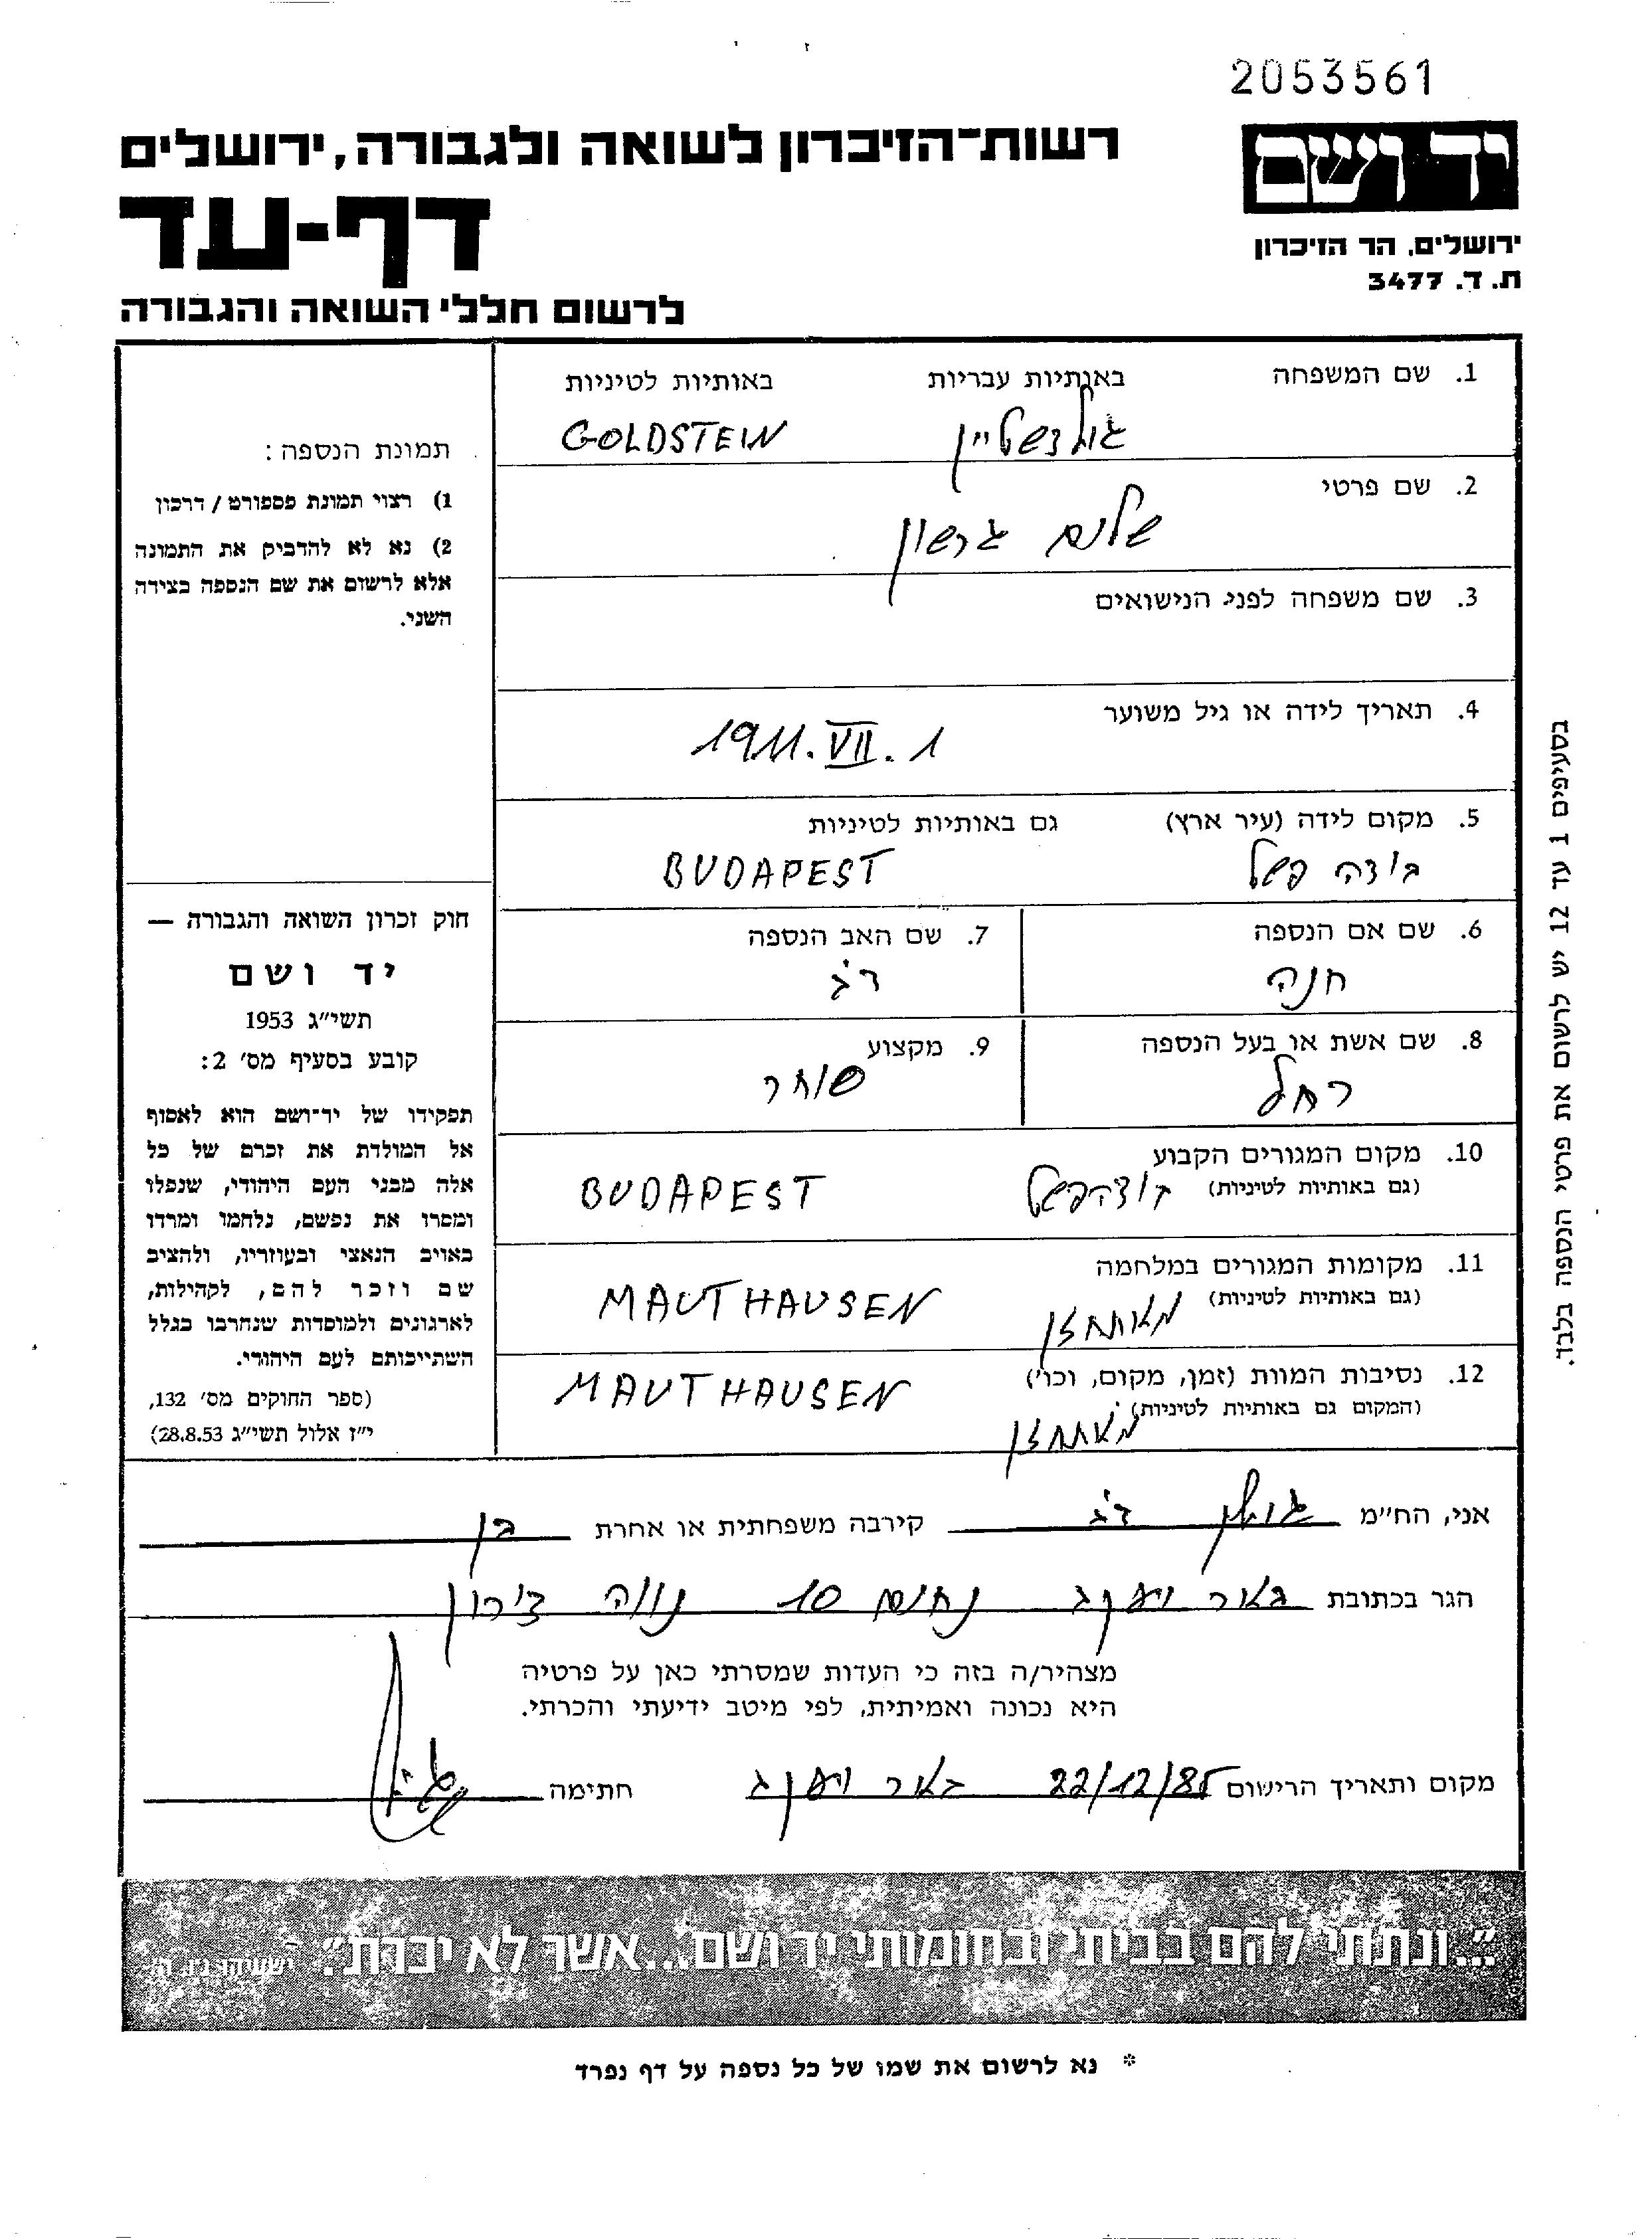 2053561
יד ושם
ירושלים, הר הזיכרון
ת. ד. 3477
רשות־הזיכרון לשואה ולגבורה, ירושלים
דף-עד
לרשום חללי השואה והגבורה
1. שם המשפחה באותיות עבריות באותיות לטיניות
גולדשטיין GOLDSTEIN
2. שם פרטי
שלום גרשון
3. שם משפחה לפני הנישואים
4. תאריך לידה או גיל משוער
1911. VII. 1
5. מקום לידה (עיר ארץ) גם באותיות לטיניות
בודה פשט BUDAPEST
6. שם אם הנספה
חנה
7. שם האב הנספה
דב
8. שם אשת או בעל הנספה
רחל
9. מקצוע
סוחר
10. מקום המגורים הקבוע
(גם באותיות לטיניות) בודהפשט BUDAPEST
11. מקומות המגורים במלחמה
(גם באותיות לטיניות) מאוטהאוזן MAUTHAUSEN
12. נסיבות המוות (זמן, מקום, וכו')
(המקום גם באותיות לטיניות) MAUTHAUSEN
תמונת הנספה:
1) רצוי תמונת פספורט / דרכון
2) נא לא להדביק את התמונה
אלא לרשום את שם הנספה בצידה
השני.
חוק זכרון השואה והגבורה —
יד ושם
תשי"ג 1953
קובע בסעיף מס' 2:
תפקידו של יד־ושם הוא לאסוף
אל המולדת את זכרם של כל
אלה מבני העם היהודי, שנפלו
ומסרו את נפשם, נלחמו ומרדו
באויב הנאצי ובעוזריו, ולהציב
שם וזכר להם, לקהילות,
לארגונים ולמוסדות שנחרבו בגלל
השתייכותם לעם היהודי.
(ספר החוקים מס' 132,
י"ז אלול תשי"ג 28.8.53)
בסעיפים 1 עד 12 יש לרשום את פרטי הנספה בלבד.
אני, הח"מ גולן דב קירבה משפחתית או אחרת בן
הגר בכתובת באר יעקב נחום 10 נווה דורון
מצהיר/ה בזה כי העדות שמסרתי כאן על פרטיה
היא נכונה ואמיתית, לפי מיטב ידיעתי והכרתי.
מקום ותאריך הרישום 22/12/85 באר יעקב חתימה
"...ונתתי להם בביתי ובחומותי יד ושם...אשר לא יכרת". ישעיהו נ"ו, ה'
* נא לרשום את שמו של כל נספה על דף נפרד